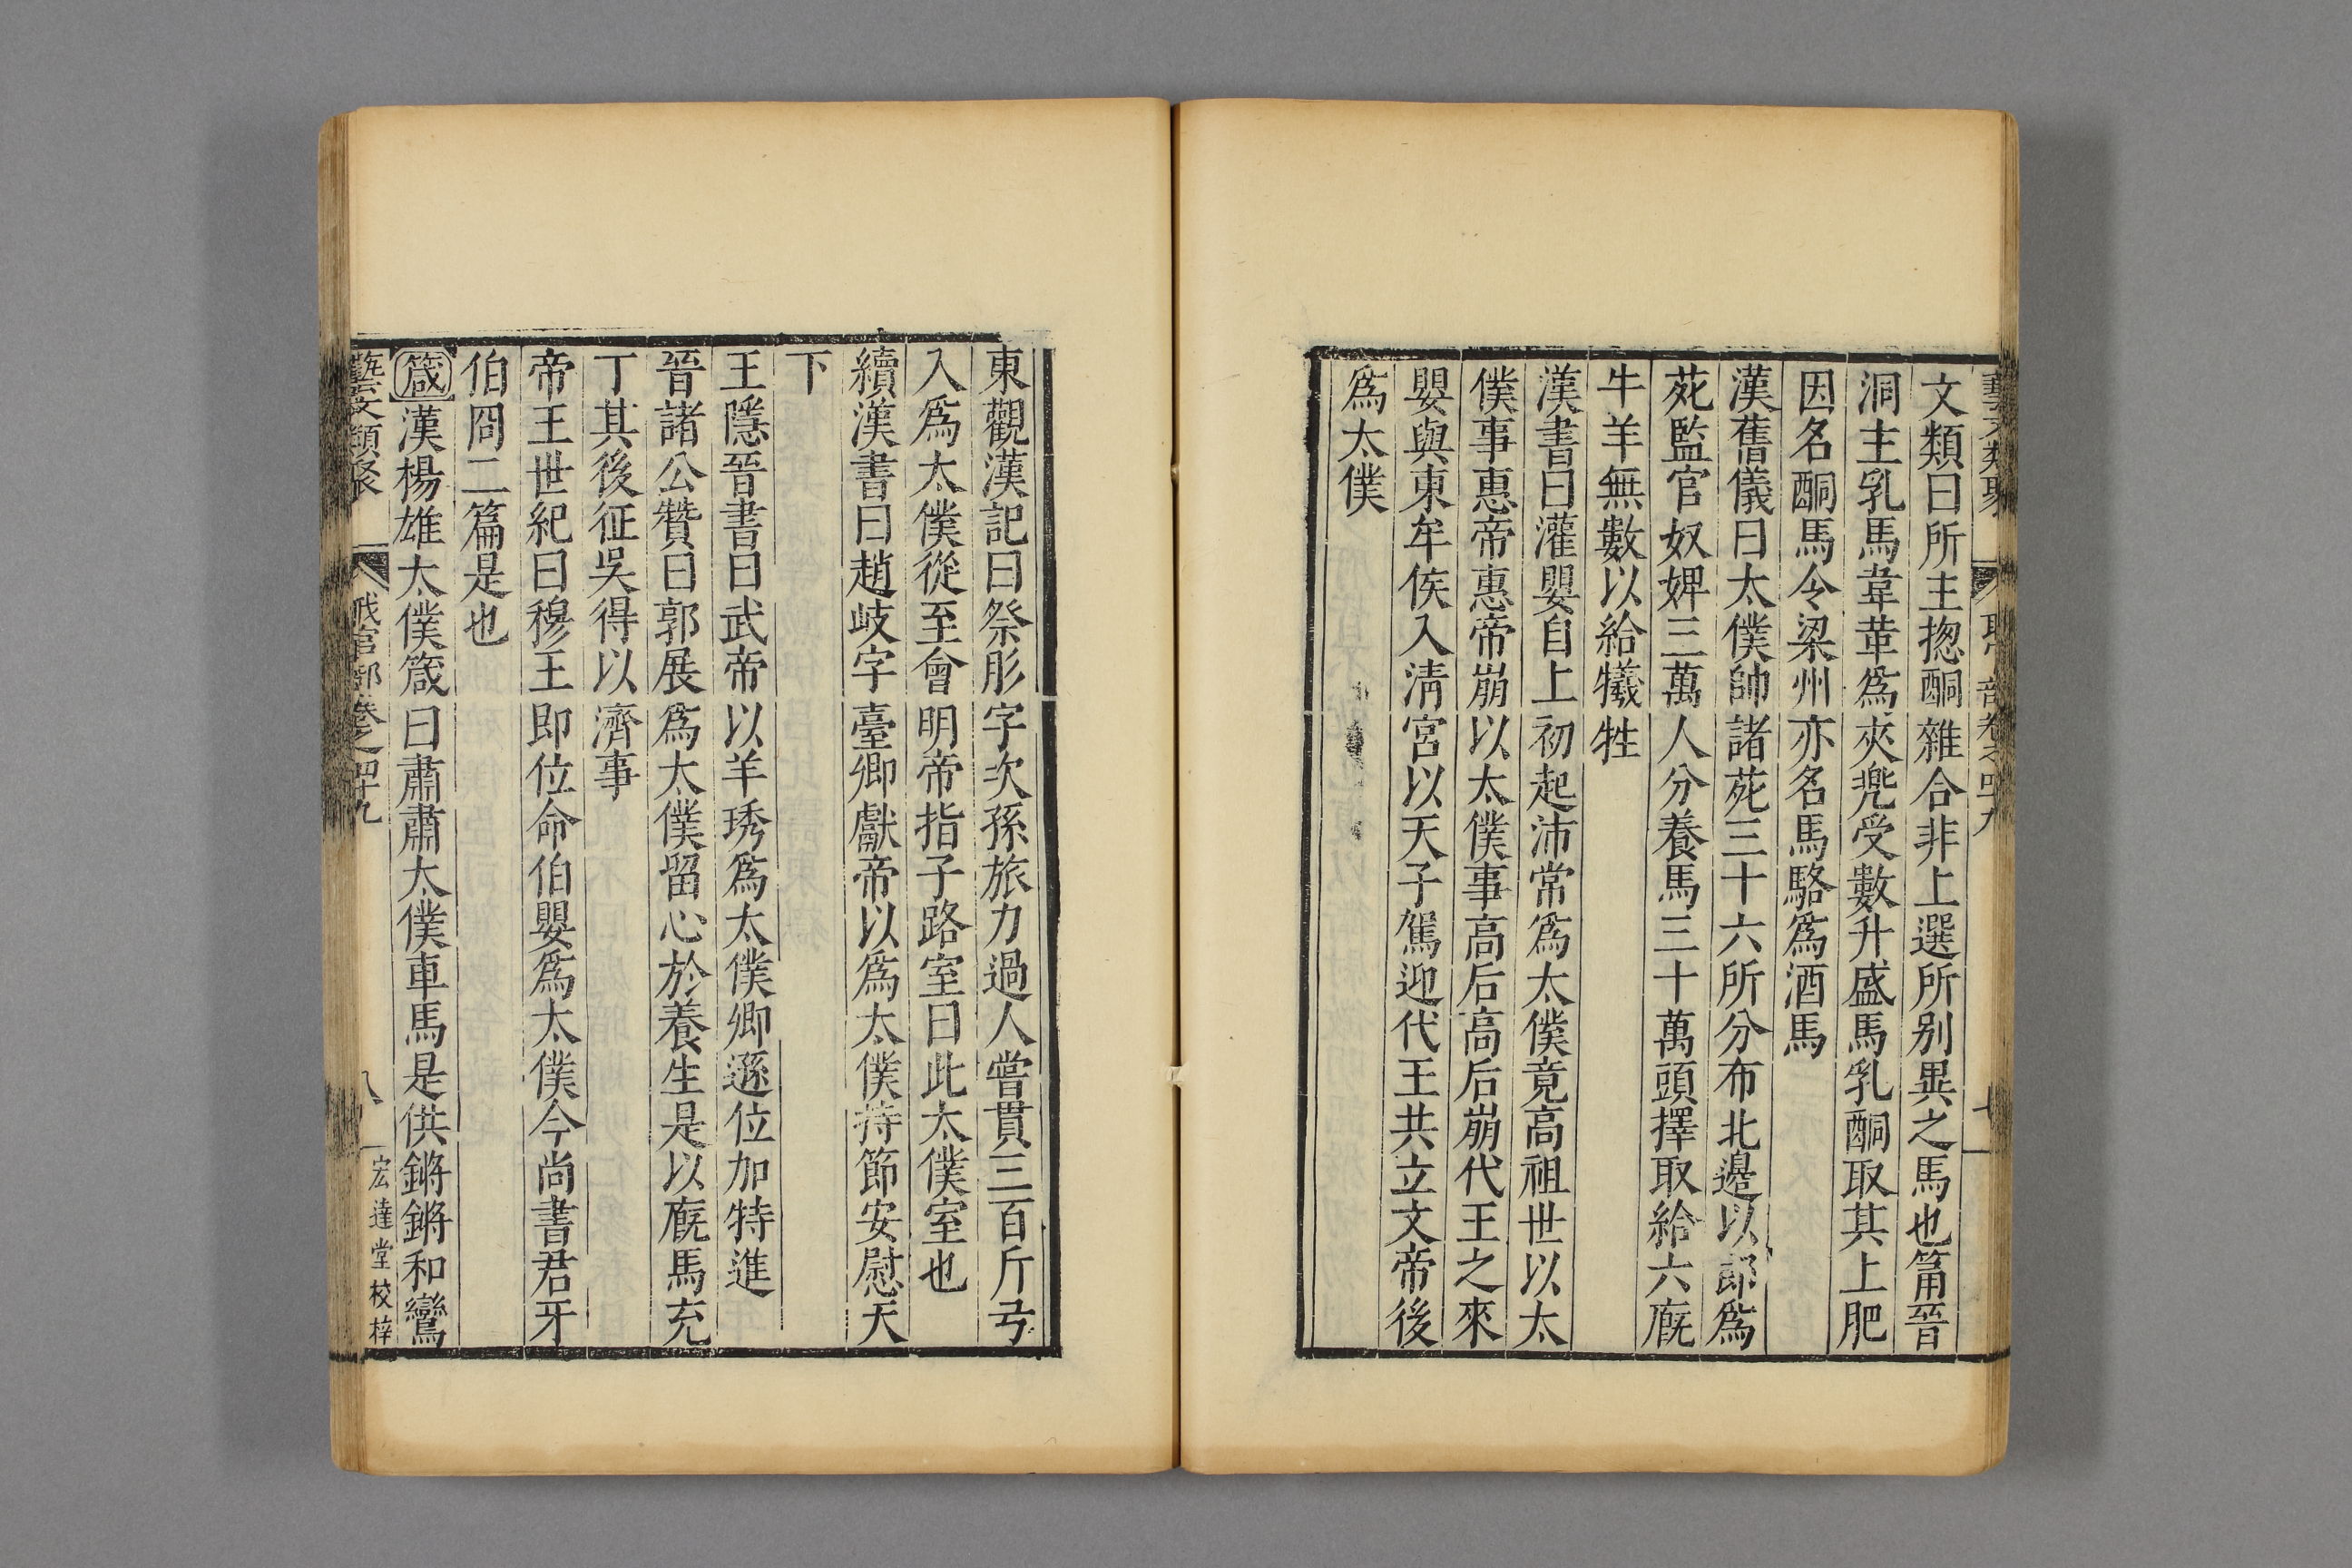 藝文類聚 職官部卷之四十九 七
文類曰所主揔酮雜合非上選所别異之馬也篇晉
洞主乳馬韋革爲夾兠受數升盛馬乳酮取其上肥
因名酮馬令梁州亦名馬駱爲酒馬
漢舊儀曰太僕帥諸苑三十六所分布北邊以郎爲
苑監官奴婢三萬人分養馬三十萬頭擇取給六廐
牛羊無數以給犧牲
漢書曰灌嬰自上初起沛常爲太僕竟高祖世以太
僕事惠帝惠帝崩以太僕事高后高后崩代王之來
嬰與東牟侯入淸宮以天子駕迎代王共立文帝後
爲太僕
東觀漢記曰祭肜字次孫旅力過人嘗貫三百斤弓
入爲太僕從至會明帝指子路室曰此太僕室也
續漢書曰趙岐字臺卿獻帝以爲太僕持節安慰天
下
王隱晉書曰武帝以羊琇爲太僕卿遜位加特進
晉諸公贊曰郭展爲太僕留心於養生是以廐馬充
丁其後征吳得以濟事
帝王世紀曰穆王即位命伯嬰爲太僕今尚書君牙
伯冏二篇是也
箴漢楊雄太僕箴曰肅肅太僕車馬是供鏘鏘和鸞
藝文類聚 職官部卷之四十九 八 宏達堂校梓